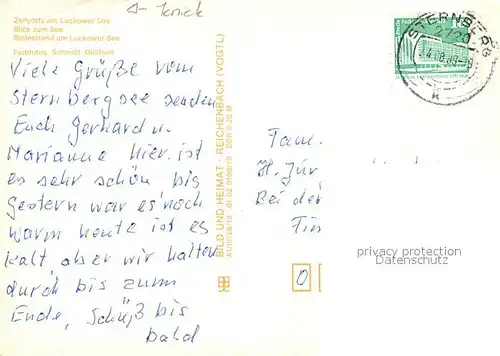 Zeltplatz am Luckower See
Blick zum See
Badestrand am Luckower See
Farbfotos Schmidt Güstrow
Viele Grüße vom
Sternberg see senden
Euch Gerhard u.
Marianne hier ist
es sehr schön bis
Gestern war es noch
warm heute ist es
kalt, aber wir halten
durch bis zum
Ende, Schüß bis
bald
BILD UND HEIMAT REICHENBACH (VOGTL)
STERNBERG
2720
K
Fam.
H. Jür
Bei der
Fin
privacy protection
Datenschutz
O